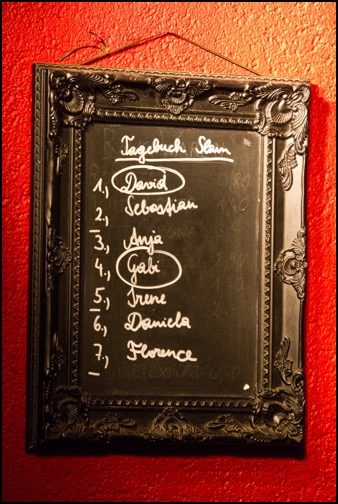 Tagebuch Slam
1., David
2., Sebastian
3., Anja
4., Gabi
5., Irene
6., Daniela
7., Florence